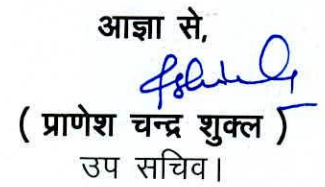 आज्ञा से,
( प्राणेश चन्द्र शुक्ल )
उप सचिव।